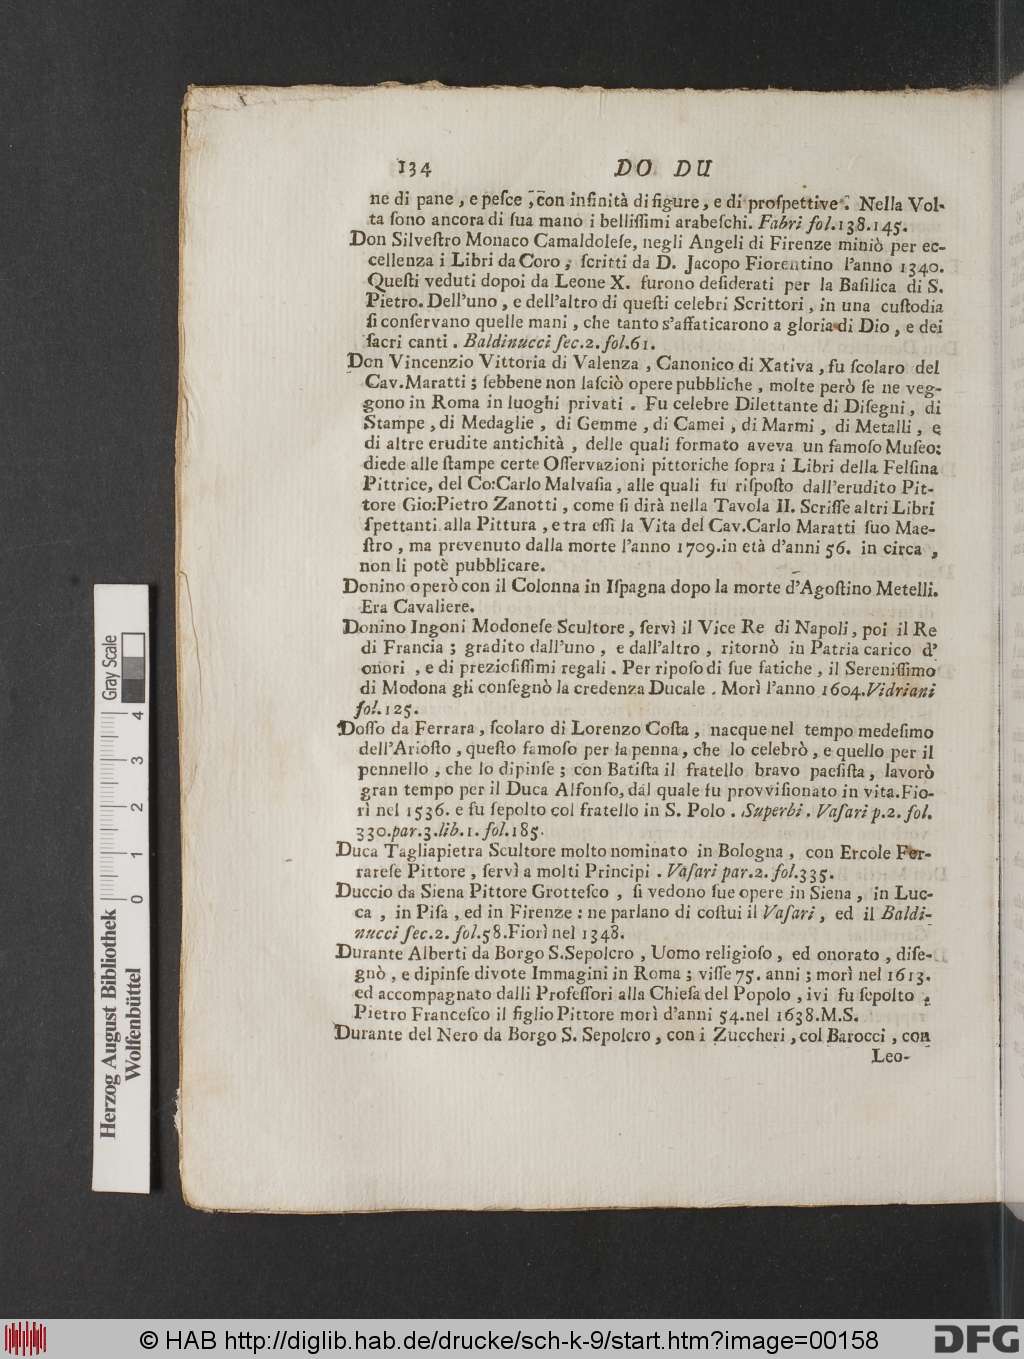 134 DO DU
ne di pane , e peſce , con infinità di figure, e di proſpettive . Nella Vol-
ta ſono ancora di ſua mano i belliſſimi arabeſchi. Fabri fol.138.145.
Don Silveſtro Monaco Camaldoleſe, negli Angeli di Firenze miniò per ec-
cellenza i Libri da Coro , ſcritti da D. Jacopo Fiorentino l'anno 1340.
Queſti veduti dopoi da Leone X. furono deſiderati per la Baſilica di S.
Pietro. Dell'uno , e dell'altro di queſti celebri Scrittori , in una cuſtodia
ſi conſervano quelle mani , che tanto s'affaticarono a gloria di Dio , e dei
ſacri canti . Baldinucci ſec.2. fol.61.
Don Vincenzio Vittoria di Valenza , Canonico di Xativa , fu ſcolaro del
Cav.Maratti ; ſebbene non laſciò opere pubbliche , molte però ſe ne veg-
gono in Roma in luoghi privati . Fu celebre Dilettante di Diſegni , di
Stampe , di Medaglie , di Gemme , di Camei , di Marmi , di Metalli , e
di altre erudite antichità , delle quali formato aveva un famoſo Muſeo:
diede alle ſtampe certe Oſſervazioni pittoriche ſopra i Libri della Felſina
Pittrice, del Co:Carlo Malvaſia , alle quali fu riſpoſto dall'erudito Pit-
tore Gio:Pietro Zanotti , come ſi dirà nella Tavola II. Scriſſe altri Libri
ſpettanti alla Pittura , e tra eſſi la Vita del Cav.Carlo Maratti ſuo Mae-
ſtro , ma prevenuto dalla morte l'anno 1709.in età d'anni 56. in circa ,
non li potè pubblicare.
Donino operò con il Colonna in Iſpagna dopo la morte d'Agoſtino Metelli.
Era Cavaliere.
Donino Ingoni Modoneſe Scultore , ſervì il Vice Re di Napoli , poi il Re
di Francia ; gradito dall'uno , e dall'altro , ritornò in Patria carico d'
onori , e di prezioſiſſimi regali . Per ripoſo di ſue fatiche , il Sereniſſimo
di Modona gli conſegnò la credenza Ducale . Morì l'anno 1604.Vidriani
fol.125.
Doſſo da Ferrara , ſcolaro di Lorenzo Coſta , nacque nel tempo medeſimo
dell'Arioſto , queſto famoſo per la penna , che lo celebrò , e quello per il
pennello , che lo dipinſe ; con Batiſta il fratello bravo paeſiſta , lavorò
gran tempo per il Duca Alfonſo, dal quale fu provviſionato in vita.Fio-
rì nel 1536. e fu ſepolto col fratello in S. Polo . Superbi . Vaſari p.2. fol.
330.par.3.lib.1. fol.185.
Duca Tagliapietra Scultore molto nominato in Bologna , con Ercole Fer-
rareſe Pittore , ſervì a molti Principi . Vaſari par.2. fol.335.
Duccio da Siena Pittore Grotteſco , ſi vedono ſue opere in Siena , in Luc-
ca , in Piſa , ed in Firenze : ne parlano di coſtui il Vaſari , ed il Baldi-
nucci ſec.2. fol.58.Fiorì nel 1348.
Durante Alberti da Borgo S.Sepolcro , Uomo religioſo , ed onorato , diſe-
gnò , e dipinſe divote Immagini in Roma ; viſſe 75. anni ; morì nel 1613.
ed accompagnato dalli Profeſſori alla Chieſa del Popolo , ivi fu ſepolto .
Pietro Franceſco il figlio Pittore morì d'anni 54.nel 1638.M.S.
Durante del Nero da Borgo S. Sepolcro , con i Zuccheri , col Barocci , con
Leo-
Gray Scale
0 1 2 3 4
Herzog August Bibliothek
Wolfenbüttel
© HAB http://diglib.hab.de/drucke/sch-k-9/start.htm?image=00158
DFG